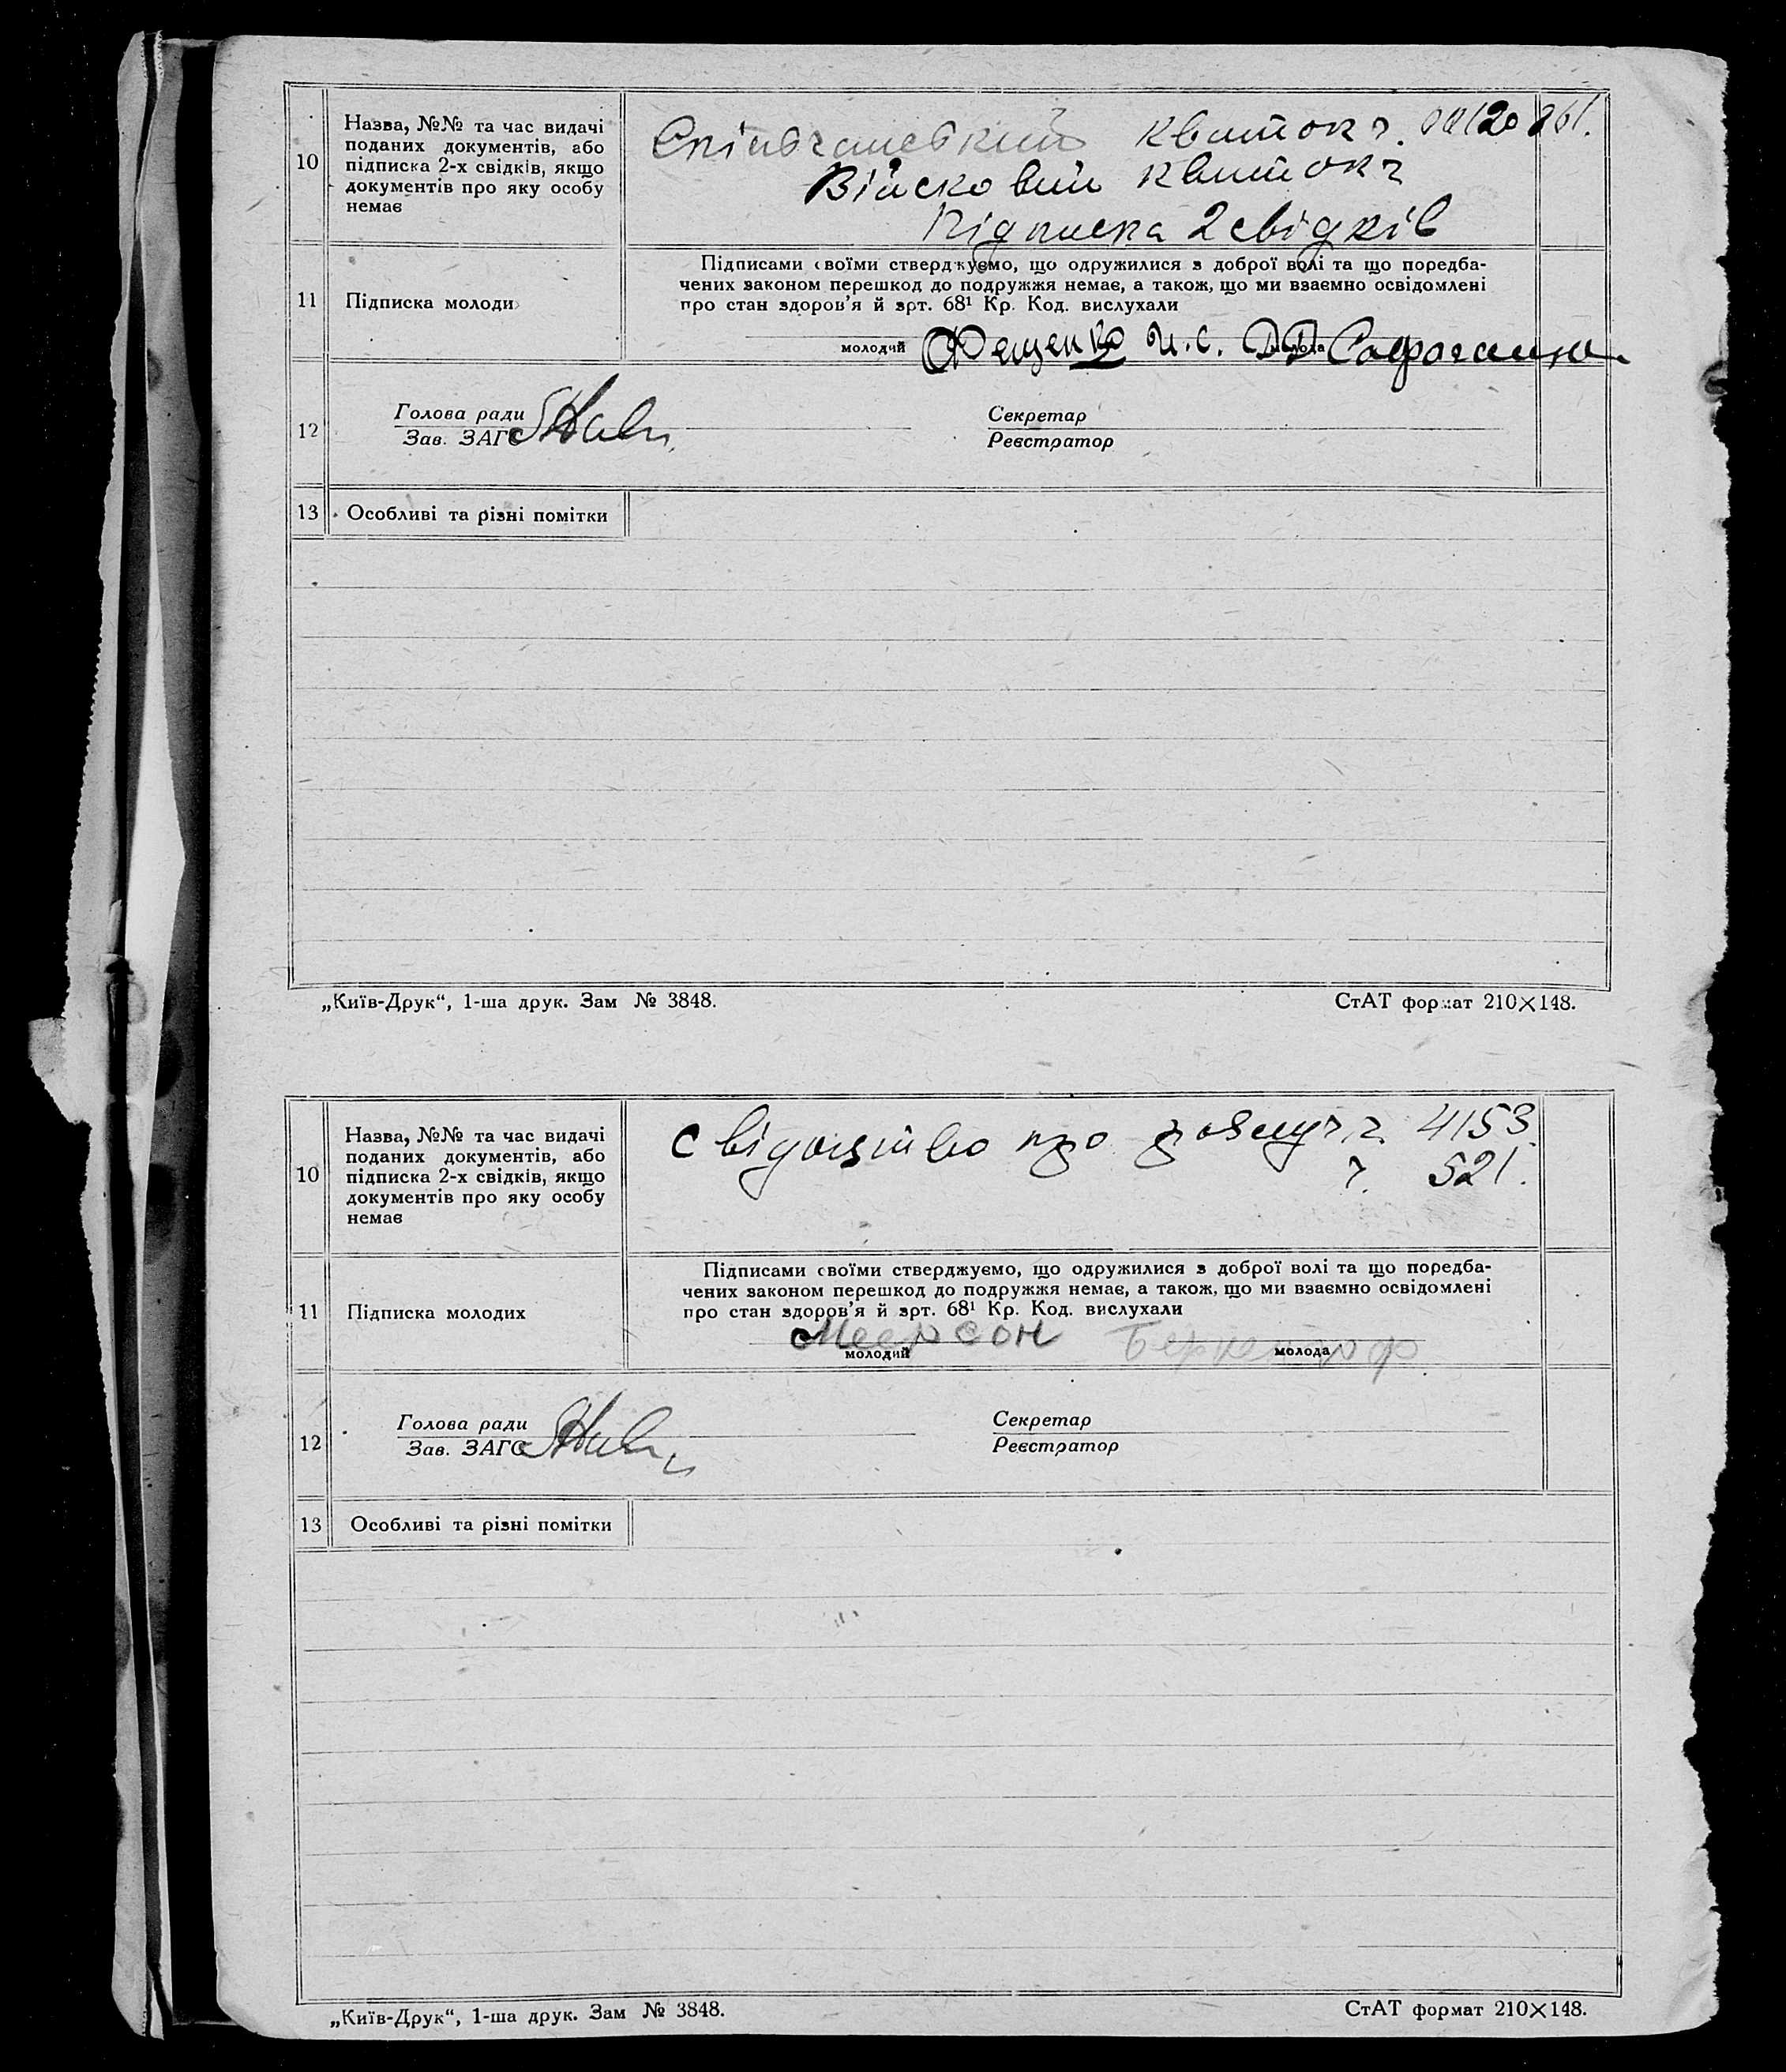 10
Назва, №№ та час видачі
поданих документів, або
підписка 2-х свідків, якщо
документів про яку особу
немає
квиток ч.
Війсковий квиток ч
Підписка 2 свідків
11
Підписка молоди
Підписами своїми стверджуємо, що одружилися з доброї волі та що поредба-
чених законом перешкод до подружжя немає, а також, що ми взаємно освідомлені
про стан здоров'я й арт. 68¹ Кр. Код. вислухали
молодий Фещенко И.С. молода
12
Голова ради
Зав. ЗАГС
Секретар
Реєстратор
13
Особливі та різні помітки
„Київ-Друк“, 1-ша друк. Зам № 3848.
СтАТ формат 210×148.
10
Назва, №№ та час видачі
поданих документів, або
підписка 2-х свідків, якщо
документів про яку особу
немає
про 4153
ч. 521.
11
Підписка молодих
Підписами своїми стверджуємо, що одружилися з доброї волі та що поредба-
чених законом перешкод до подружжя немає, а також, що ми взаємно освідомлені
про стан здоров'я й арт. 68¹ Кр. Код. вислухали
Меерсон
молодий
молода
12
Голова ради
Зав. ЗАГС
Секретар
Реєстратор
13
Особливі та різні помітки
„Київ-Друк“, 1-ша друк. Зам № 3848.
СтАТ формат 210×148.